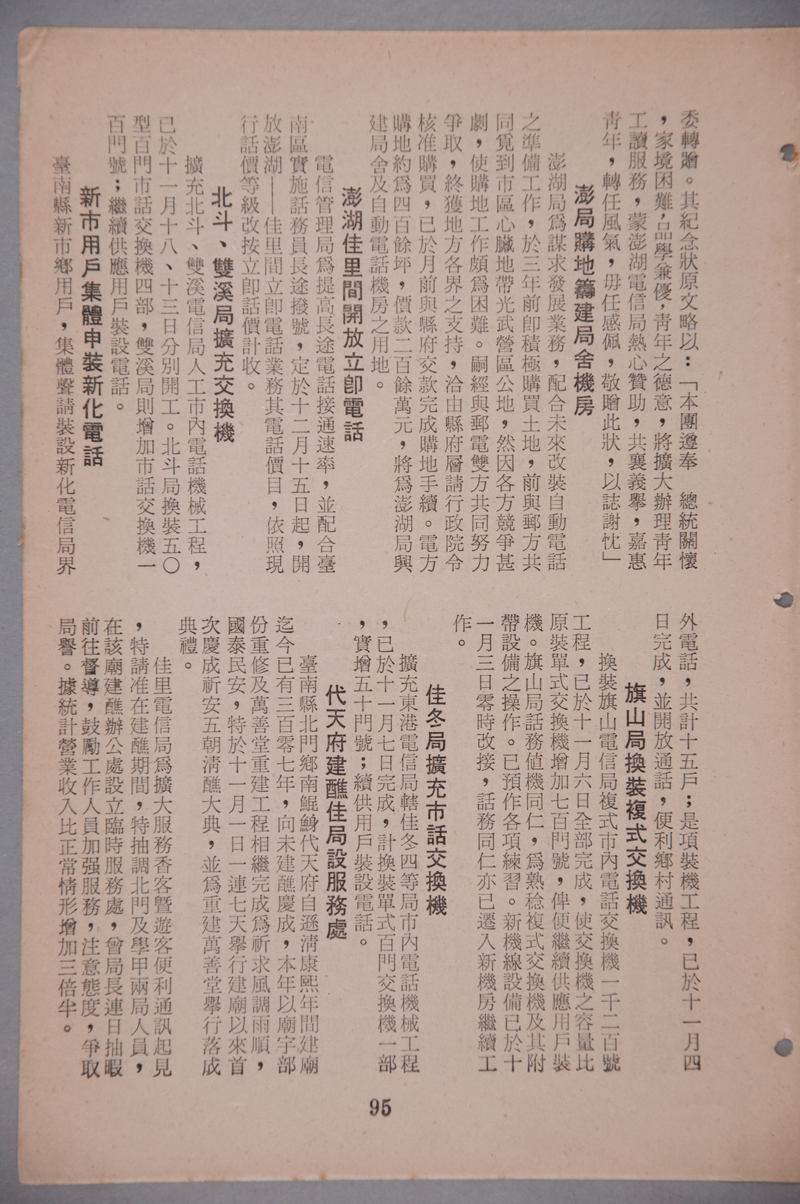 委轉贈。其紀念狀原文略以：「本團遵奉　總統關懷
，家境困難品學兼優，青年之德意，將擴大辦理青年
工讀服務，蒙澎湖電信局熱心贊助，共襄義舉，嘉惠
青年，轉任風氣，毋任感佩，敬贈此狀，以誌謝忱」
澎局購地籌建局舍機房
澎湖局爲謀求發展業務，配合未來改裝自動電話
之準備工作，於三年前卽積極購買土地，前與郵方共
同覓到市區心臟地帶光武營區公地，然因各方競爭甚
劇，使購地工作頗爲困難。嗣經與郵電雙方共同努力
爭取，終獲地方各界之支持，洽由縣府層請行政院令
核准購買，已於月前與縣府交款完成購地手續。電方
購地約爲四百餘坪，價款二百餘萬元，將爲澎湖局興
建局舍及自動電話機房之用地。
澎湖佳里間開放立卽電話
電信管理局爲提高長途電話接通速率，並配合臺
南區實施話務員長途撥號，定於十二月十五日起，開
放澎湖——佳里間立卽電話業務其電話價目，依照現
行話價等級改按立卽話價計收。
北斗、雙溪局擴充交換機
擴充北斗、雙溪電信局人工市內電話機械工程，
已於十一月十八、十三日分別開工。北斗局換裝五〇
型百門市話交換機四部，雙溪局則增加市話交換機一
百門號；繼續供應用戶裝設電話。
新市用戶集體申裝新化電話
臺南縣新市鄉用戶，集體聲請裝設新化電信局界
外電話，共計十五戶；是項裝機工程，已於十一月四
日完成，並開放通話，便利鄉村通訊。
旗山局換裝複式交換機
換裝旗山電信局複式市內電話交換機一千二百號
工程，已於十一月六日全部完成，使交換機之容量比
原裝單式交換機增加七百門號，俾便繼續供應用戶裝
機。旗山局話務值機同仁，爲熟稔複式交換機及其附
帶設備之操作。已預作各項練習。新機線設備已於十
一月三日零時改接，話務同仁亦已遷入新機房繼續工
作。
佳冬局擴充市話交換機
擴充東港電信局轄佳冬四等局市內電話機械工程
，已於十一月七日完成，計換裝單式百門交換機一部
，實增五十門號；續供用戶裝設電話。
代天府建醮佳局設服務處
臺南縣北門鄉南鯤鯓代天府自遜淸康熙年間建廟
迄今已有三百零七年，向未建醮慶成，本年以廟宇部
份重修及萬善堂重建工程相繼完成爲祈求風調雨順，
國泰民安，特於十一月一日一連七天舉行建廟以來首
次慶成祈安五朝淸醮大典，並爲重建萬善堂舉行落成
典禮。
佳里電信局爲擴大服務香客暨遊客便利通訊起見
，特請准在建醮期間，特抽調北門及學甲兩局人員，
在該廟建醮辦公處設立臨時服務處，曾局長連日抽暇
前往督導，鼓勵工作人員加强服務，注意態度，爭取
局譽。據統計營業收入比正常情形增加三倍半。
95